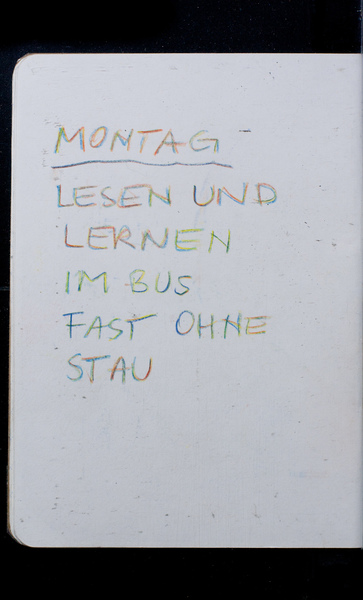 MONTAG
LESEN UND
LERNEN
IM BUS
FAST OHNE
STAU